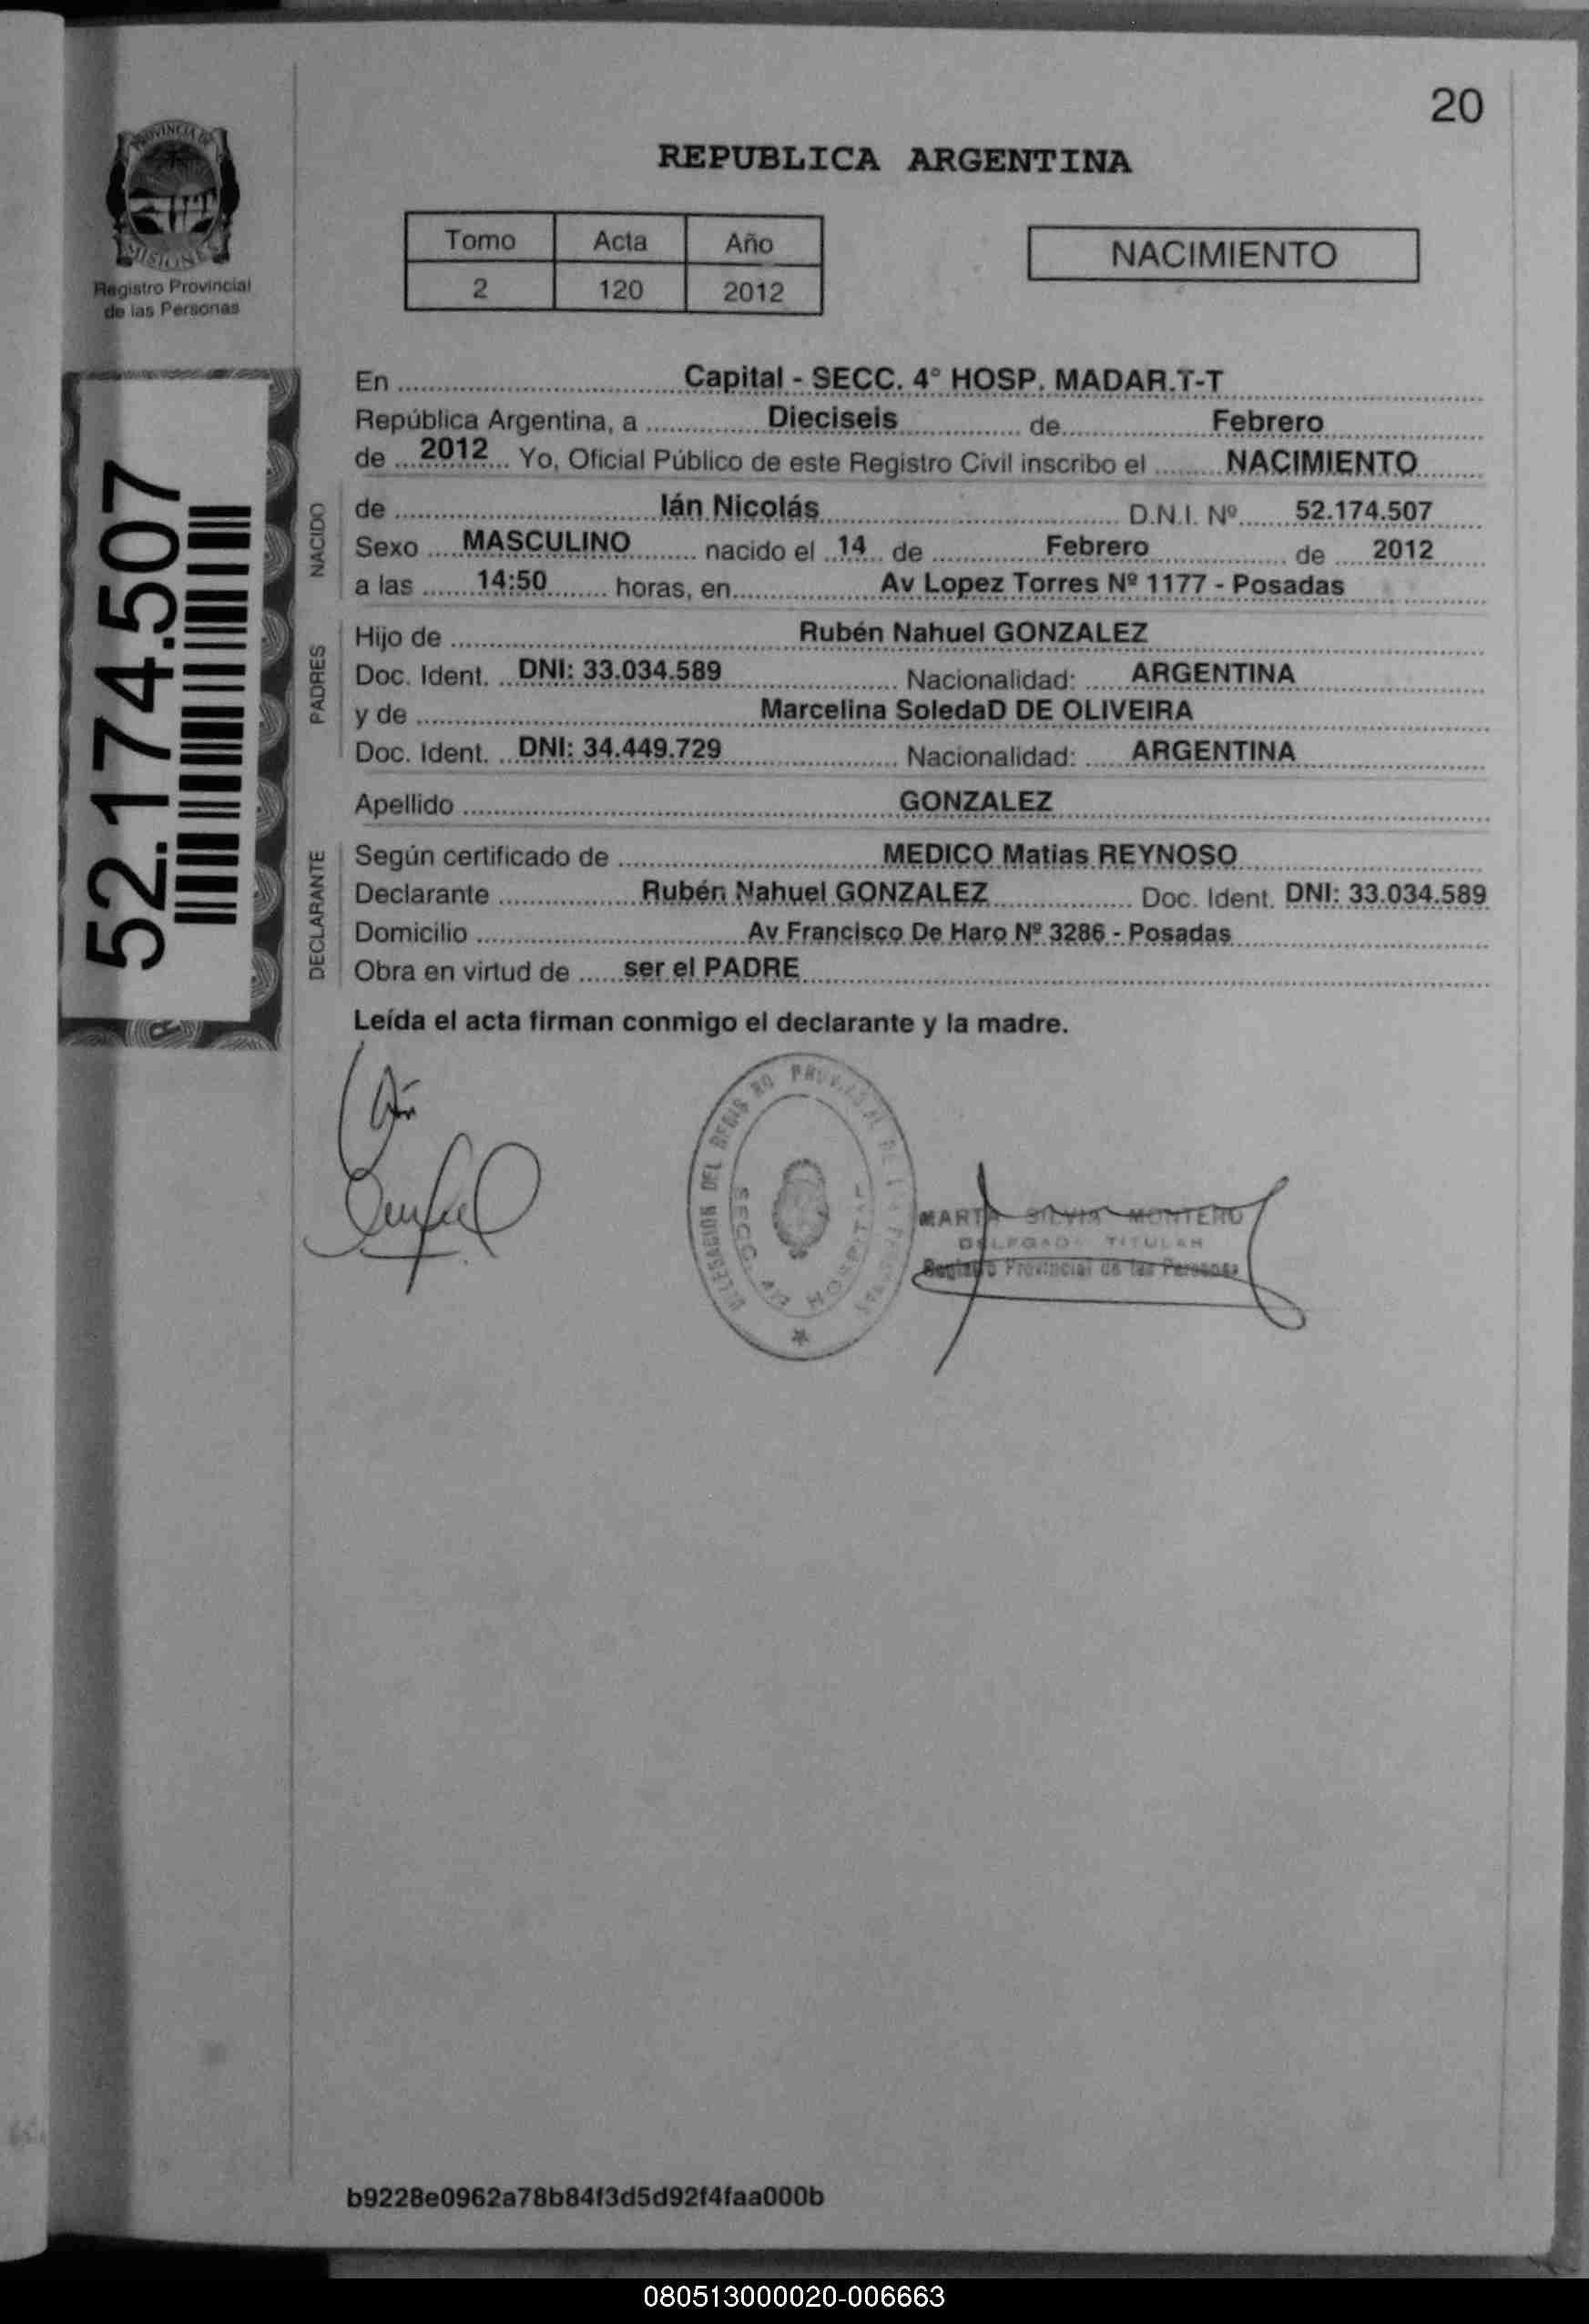 20
PROVINCIA DE
MISIONES
Registro Provincial
de las Personas
REPUBLICA ARGENTINA
Tomo Acta Año
2 120 2012
NACIMIENTO
52.174.507
En Capital - SECC. 4° HOSP. MADAR.T-T
República Argentina, a Dieciseis de Febrero
de 2012 Yo, Oficial Público de este Registro Civil inscribo el NACIMIENTO
NACIDO
de Ián Nicolás D.N.I. Nº 52.174.507
Sexo MASCULINO nacido el 14 de Febrero de 2012
a las 14:50 horas, en Av Lopez Torres Nº 1177 - Posadas
PADRES
Hijo de Rubén Nahuel GONZALEZ
Doc. Ident. DNI: 33.034.589 Nacionalidad: ARGENTINA
y de Marcelina SoledaD DE OLIVEIRA
Doc. Ident. DNI: 34.449.729 Nacionalidad: ARGENTINA
Apellido GONZALEZ
DECLARANTE
Según certificado de MEDICO Matias REYNOSO
Declarante Rubén Nahuel GONZALEZ Doc. Ident. DNI: 33.034.589
Domicilio Av Francisco De Haro Nº 3286 - Posadas
Obra en virtud de ser el PADRE
Leída el acta firman conmigo el declarante y la madre.
DELEGACION DEL REGISTRO PROVINCIAL DE LAS PERSONAS
SECC. 4a HOSPITAL
MARTA SILVIA MONTERO
DELEGADA TITULAR
Registro Provincial de las Personas
b9228e0962a78b84f3d5d92f4faa000b
080513000020-006663